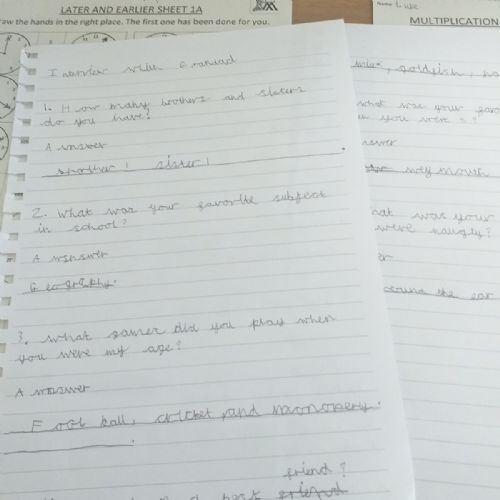 LATER AND EARLIER SHEET 1A
raw the hands in the right place. The first one has been done for you.
Name Luke
MULTIPLICATION
Interview with Grandad
1. How many brothers and sisters
do you have?
Answer
brother 1 sister 1.
2. What was your favorite subject
in school?
Answer
Geography.
3. What games did you play when
you were my age?
Answer
Football, cricket and monopery.
friend?
best friend
goldfish,
what was your
you were
mouth
hat was your
were naughty?
around the ear